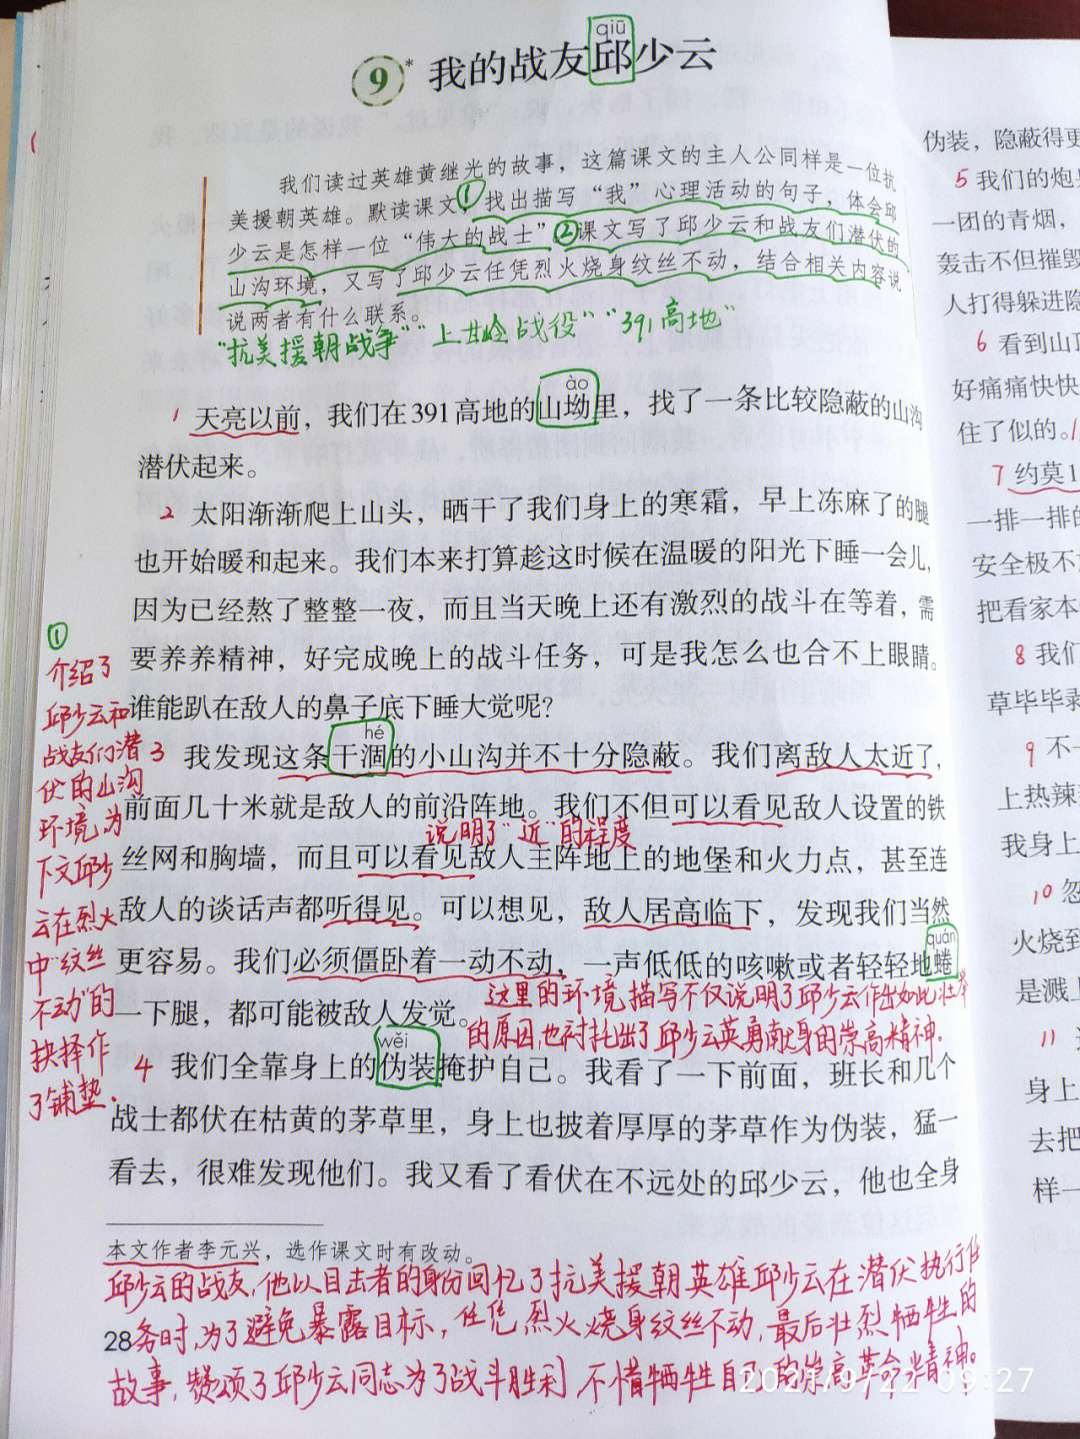 qiū
9* 我的战友邱少云
我们读过英雄黄继光的故事，这篇课文的主人公同样是一位抗
美援朝英雄。默读课文，①找出描写“我”心理活动的句子，体会邱
少云是怎样一位“伟大的战士”②课文写了邱少云和战友们潜伏的
山沟环境，又写了邱少云任凭烈火烧身纹丝不动，结合相关内容说
说两者有什么联系。
“抗美援朝战争”“上甘岭战役”“391高地”
ào
1 天亮以前，我们在391高地的山坳里，找了一条比较隐蔽的山沟
潜伏起来。
2 太阳渐渐爬上山头，晒干了我们身上的寒霜，早上冻麻了的腿
也开始暖和起来。我们本来打算趁这时候在温暖的阳光下睡一会儿，
因为已经熬了整整一夜，而且当天晚上还有激烈的战斗在等着，需
要养养精神，好完成晚上的战斗任务，可是我怎么也合不上眼睛。
谁能趴在敌人的鼻子底下睡大觉呢？
hé
3 我发现这条干涸的小山沟并不十分隐蔽。我们离敌人太近了，
前面几十米就是敌人的前沿阵地。我们不但可以看见敌人设置的铁
说明了“近”的程度
丝网和胸墙，而且可以看见敌人主阵地上的地堡和火力点，甚至连
敌人的谈话声都听得见。可以想见，敌人居高临下，发现我们当然
quán
更容易。我们必须僵卧着一动不动，一声低低的咳嗽或者轻轻地蜷
一下腿，都可能被敌人发觉。
这里的环境描写不仅说明了邱少云作出如此壮举
的原因，也衬托出了邱少云英勇献身的崇高精神。
wěi
4 我们全靠身上的伪装掩护自己。我看了一下前面，班长和几个
战士都伏在枯黄的茅草里，身上也披着厚厚的茅草作为伪装，猛一
看去，很难发现他们。我又看了看伏在不远处的邱少云，他也全身
①
介绍了
邱少云和
战友们潜
伏的山沟
环境，为
下文邱少
云在烈火
中“纹丝
不动”的
抉择作
了铺垫.
本文作者李元兴，选作课文时有改动。
邱少云的战友，他以目击者的身份回忆了抗美援朝英雄邱少云在潜伏执行任
28
务时，为了避免暴露目标，任凭烈火烧身纹丝不动，最后壮烈牺牲的
故事，赞颂了邱少云同志为了战斗胜利，不惜牺牲自己的崇高革命精神。
2021/9/22 09:27
伪装，隐蔽得更
5 我们的炮
一团的青烟，
轰击不但摧毁
人打得躲进隐
6 看到山顶
好痛痛快快
住了似的。
7 约莫1
一排一排的
安全极不
把看家本
8 我们
草毕毕剥
9 不
上热辣
我身上
10 忽
火烧到
是溅上
11
身上
去把
样一